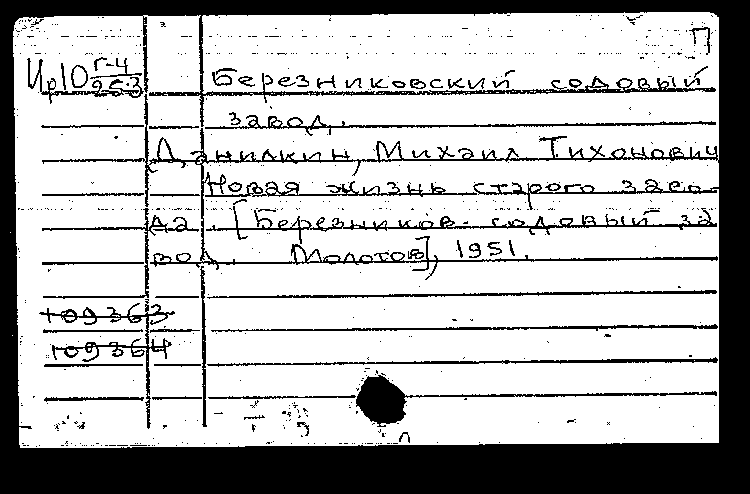 П
Ир10 Г-4 Березниковский содовый
953
завод.
Данилкин, Михаил Тихонович
Новая жизнь старого заво-
да. [Березников. содовый за
вод. Молотов], 1951.
109363
109364